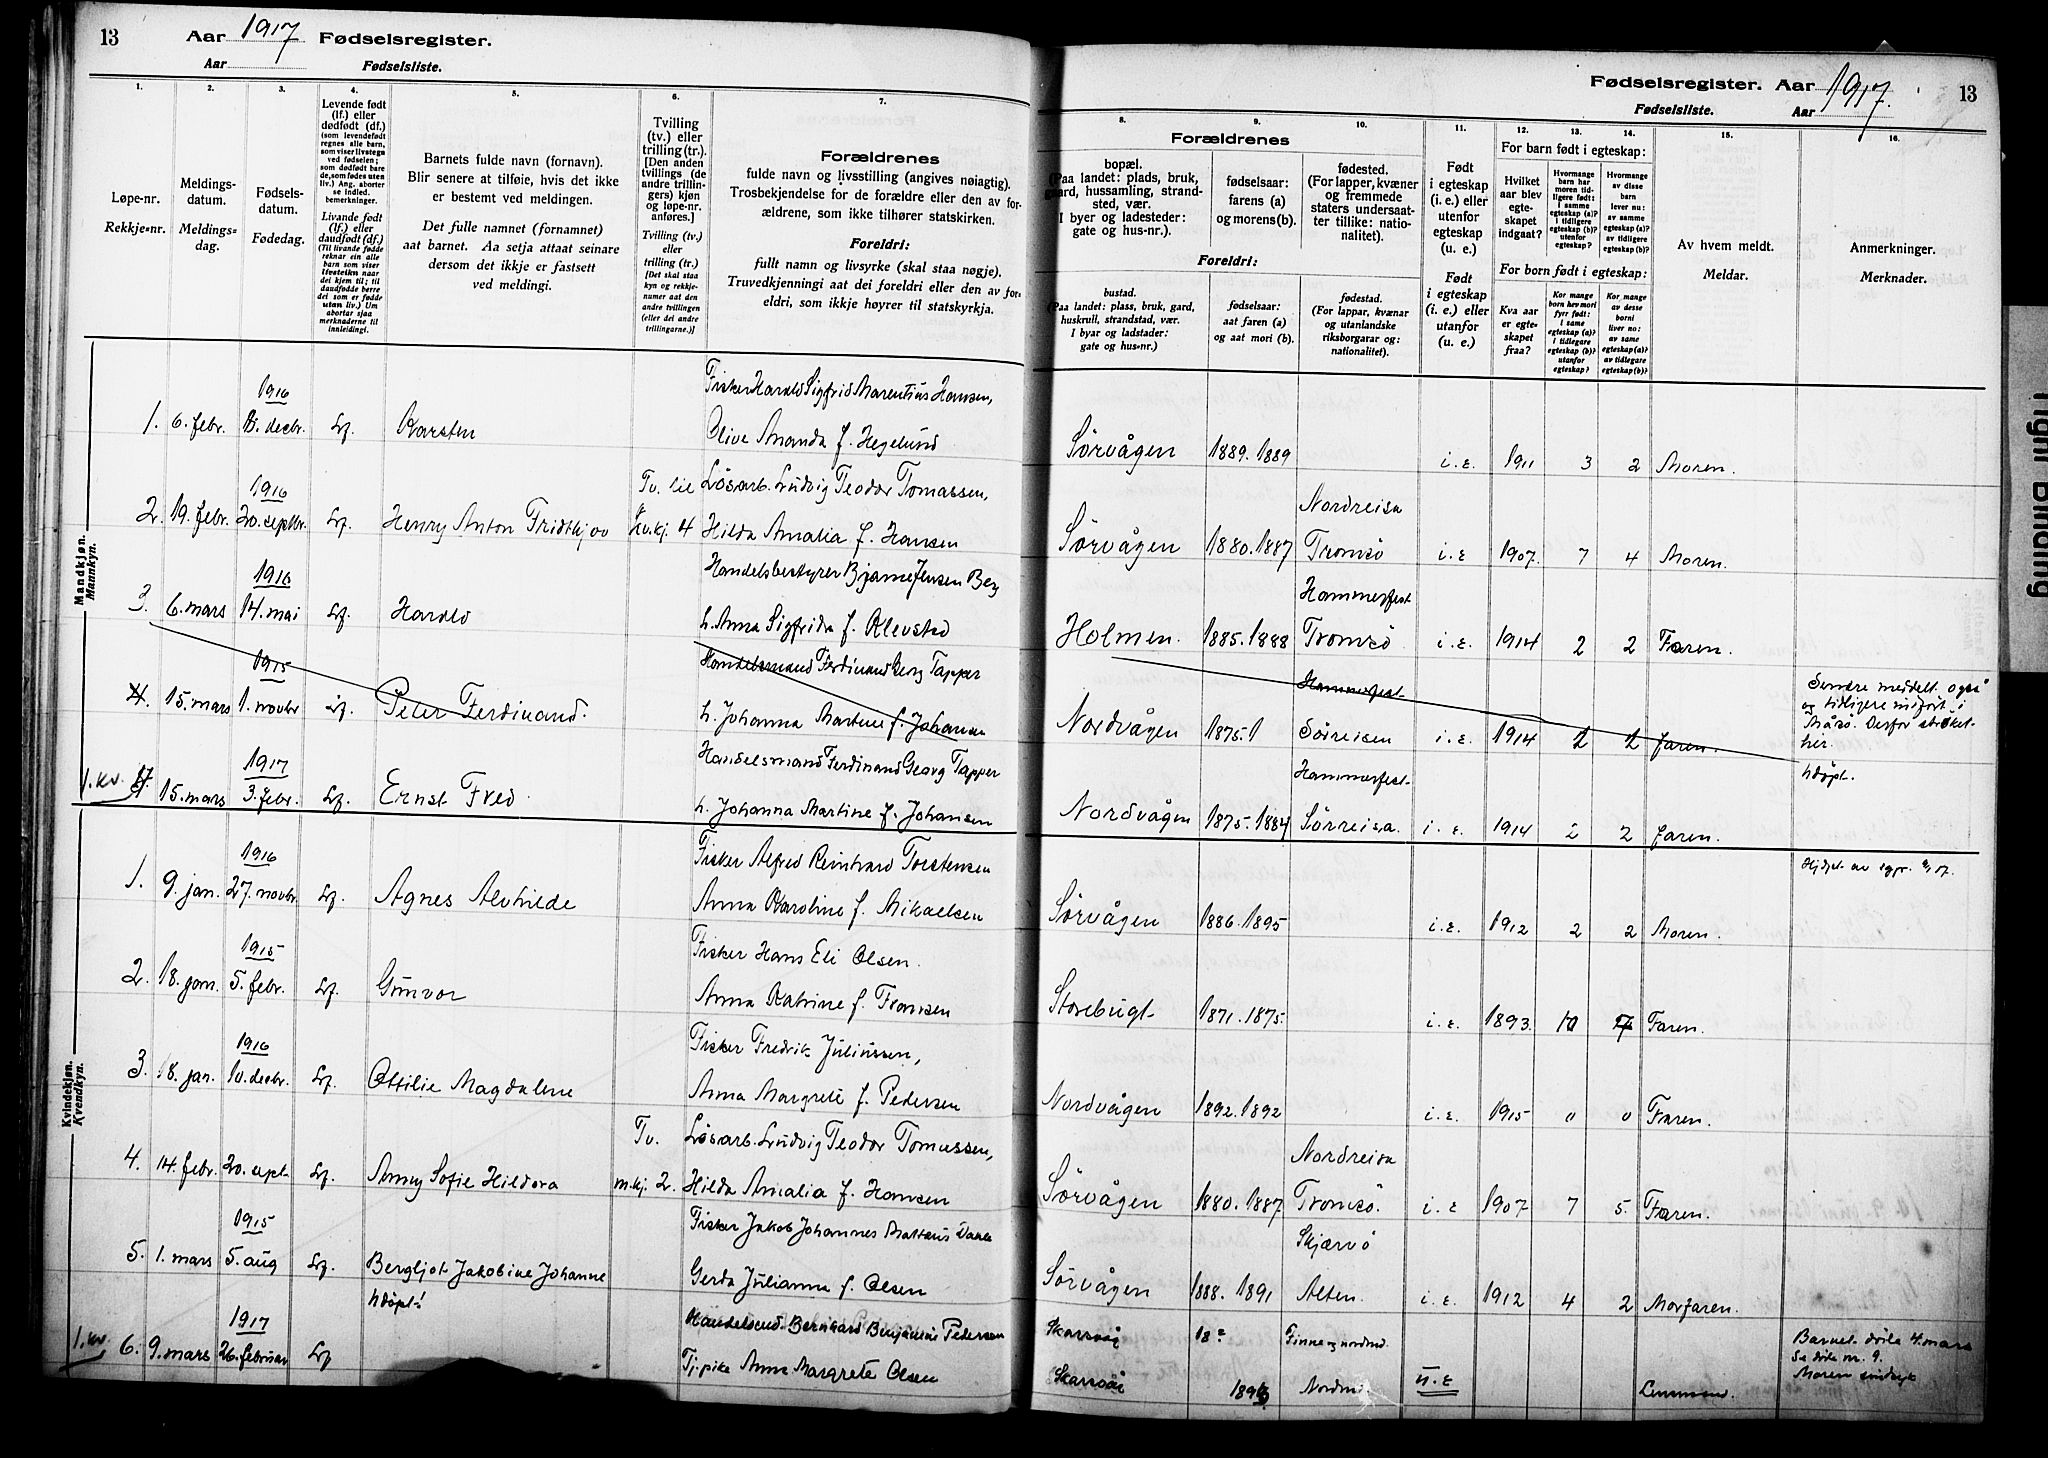 13 Aar 1917 Fødselsregister.
Aar Fødselsliste.
Fødselsregister. Aar 1917. 13
Fødselsliste. Aar
1. 2. 3. 4. 5. 6. 7.
Løpe-nr.
Rekkje-nr.
Meldings-
datum.
Meldings-
dag.
Fødsels-
datum.
Fødedag.
Levende født
(lf.) eller
dødfødt (df.)
(som levendefødt
regnes alle barn,
som viser livstegn
ved fødselen;
som dødfødt bare
de, som fødes uten
liv.) Ang. aborter
se indled.
bemerkninger.
Livande født
(lf.) eller
daudfødt (df.)
(Til livande fødde
reknar ein alle
barn som viser
livsteikn naar
dei kjem til; til
daudfødde berre
dei som er fødde
utan liv.) Um
abortar sjaa
merknaderne til
innleidingi.
Barnets fulde navn (fornavn).
Blir senere at tilføie, hvis det ikke
er bestemt ved meldingen.
Det fulle namnet (fornamnet)
aat barnet. Aa setja attaat seinare
dersom det ikkje er fastsett
ved meldingi.
Tvilling
(tv.) eller
trilling (tr.).
[Den anden
tvillings (de
andre trillin-
gers) kjøn og
løpe-nr.
anføres.]
Tvilling (tv.)
eller
trilling (tr.)
[Det skal staa
kyn og rekkje-
numer aat den
andre tvillingen
(eller dei andre
trillingarne.)]
Forældrenes
fulde navn og livsstilling (angives nøiagtig).
Trosbekjendelse for de forældre eller den av for-
ældrene, som ikke tilhører statskirken.
Foreldri:
fullt namn og livsyrke (skal staa nøgje).
Truvedkjenningi aat dei foreldri eller den av forel-
eldri, som ikkje høyrer til statskyrkja.
8. 9. 10. 11. 12. 13. 14. 15. 16.
Forældrenes
bopæl.
(Paa landet: plads, bruk,
gaard, hussamling, strand-
sted, vær.
I byer og ladesteder:
gate og hus-nr.).
fødselsaar:
farens (a)
og morens (b).
fødested.
(For lapper, kvæner
og fremmede
staters undersaat-
ter tillike: natio-
nalitet).
Foreldri:
bustad.
(Paa landet: plass, bruk, gard,
huskrull, strandstad, vær.
I byar og ladstader:
gate og hus-nr.)
fødselsaar:
aat faren (a)
og aat mori (b).
fødestad.
(For lappar, kvænar
og utanlandske
riksborgarar og:
nationalitet).
Født
i egteskap
(i. e.) eller
utenfor
egteskap
(u. e.)
Født
i egteskap
(i. e.) eller
utanfor
(u. e.).
For barn født i egteskap:
Hvilket
aar blev
egte-
skapet
indgaat?
Hvormange
barn har
moren tid-
ligere født:
I samme
egteskap (a)?
I tidligere
egteskap (b)?
utenfor
egteskap?
Hvormange
av disse
barn
lever nu:
av samme
egteskap (a)?
av tidligere
egteskap (b)?
For born født i egteskap:
Kva aar
er egte-
skapet
fraa?
Kor mange
born hev mori
fyrr født:
I same
egteskap (a)?
I tidlegare
egteskap (b)?
utanfor
egteskap?
Kor mange
av desse
borni
liver no:
av same
egteskap (a)?
av tidlegare
egteskap (b)?
Av hvem meldt.
Meldar.
Anmerkninger.
Merknader.
Mandkjøn.
Mannkyn.
1916
Fisker Harald Sigfrid Marentius Hansen,
1. 6. febr. 13. decbr. Lf. Karsten
Olive Amanda f. Hegelund
Sørvågen 1889. 1889 i. e. 1911 3 2 Moren.
1916
Tv. til Løsarb. Ludvig Teodor Tomassen,
Nordreisa
2. 19. febr. 20. septbr. Lf. Henry Anton Fridtkjov kv.kj. 4 Hilda Amalia f. Hansen
Sørvågen 1880. 1887 Tromsø i. e 1907. 7 4 Moren.
1916
Handelsbestyrer Bjarne Jensen Berg
Hammerfest
3. 6. mars 14. mai Lf. Harald
h. Anna Sigfrida f. Klevstad
Holmen. 1885. 1888 Tromsø i. e. 1914 2 2 Faren.
1915
Handelsmand Ferdinand Georg Tapper
Hammerfest
4. 15. mars 1. novbr Lf. Peter Ferdinand.
h. Johanna Martine f. Johansen
Nordvågen 1875. 1 Söireisen i. e. 1914 2 2 faren.
Sendre meddelt også
og tidligere infört i
Måsø. Derfor strøket
her.
1917
Handelsmand Ferdinand Georg Tapper
Hammerfest
Udöpt.
1. kv. 4. 15. mars 3. febr. Lf. Ernst Fred
h. Johanna Martine f. Johansen
Nordvågen 1875. 1884 Sørreisa. i. e. 1914 2 2 faren.
Kvindekjøn.
Kvendkyn.
1916
Fisker Alfred Reinhard Torstensen
1. 9. jan. 27. novbr. Lf. Agnes Alvhilde
Anna Karoline f. Mikaelsen
Sørvågen 1886. 1895 i. e. 1912 2 2 Moren.
1915
Fisker Hans Eli Olsen.
2. 18. jan. 5. febr. Lf. Gunvor
Anna Katrine f. Fransen
Storebugt 1871. 1875. i. e. 1893. 10 7 Faren.
1916
Fisker Fredrik Juliussen,
3. 18. jan. 10. decbr. Lf. Ottilie Magdalene
Anna Margrete f. Pedersen
Nordvågen 1892. 1892 i. e. 1915 0 0 Faren.
Tv. Løsarb. Ludvig Teodor Tomassen,
Nordreisa
4. 14. febr. 20. sept. Lf. Anny Sofie Hildora m.kj. 2. Hilda Amalia f. Hansen
Sørvågen 1880. 1887 Tromsø. i. e 1907 7 5. Faren.
1915
Fisker Jakob Johannes
Skjærvø
5. 1. mars 5. aug Lf. Bergljot Jakobine Johanne
Gerda Julianna f. Olsen
Sørvågen 1888. 1891 Alten. i. e. 1912 4 2 Morfaren.
Udöpt!
1917
Bernhard Benjamin Pedersen
Skarsvåg 18
Barnet døde 4. mars
1. kv. 6. 9. mars 26. februar Lf
Tj.pike Anna Margrete Olsen
Skarsvåg 1893 Nordmd. u. e Lensmand.
Se døde nr. 9.
Moren